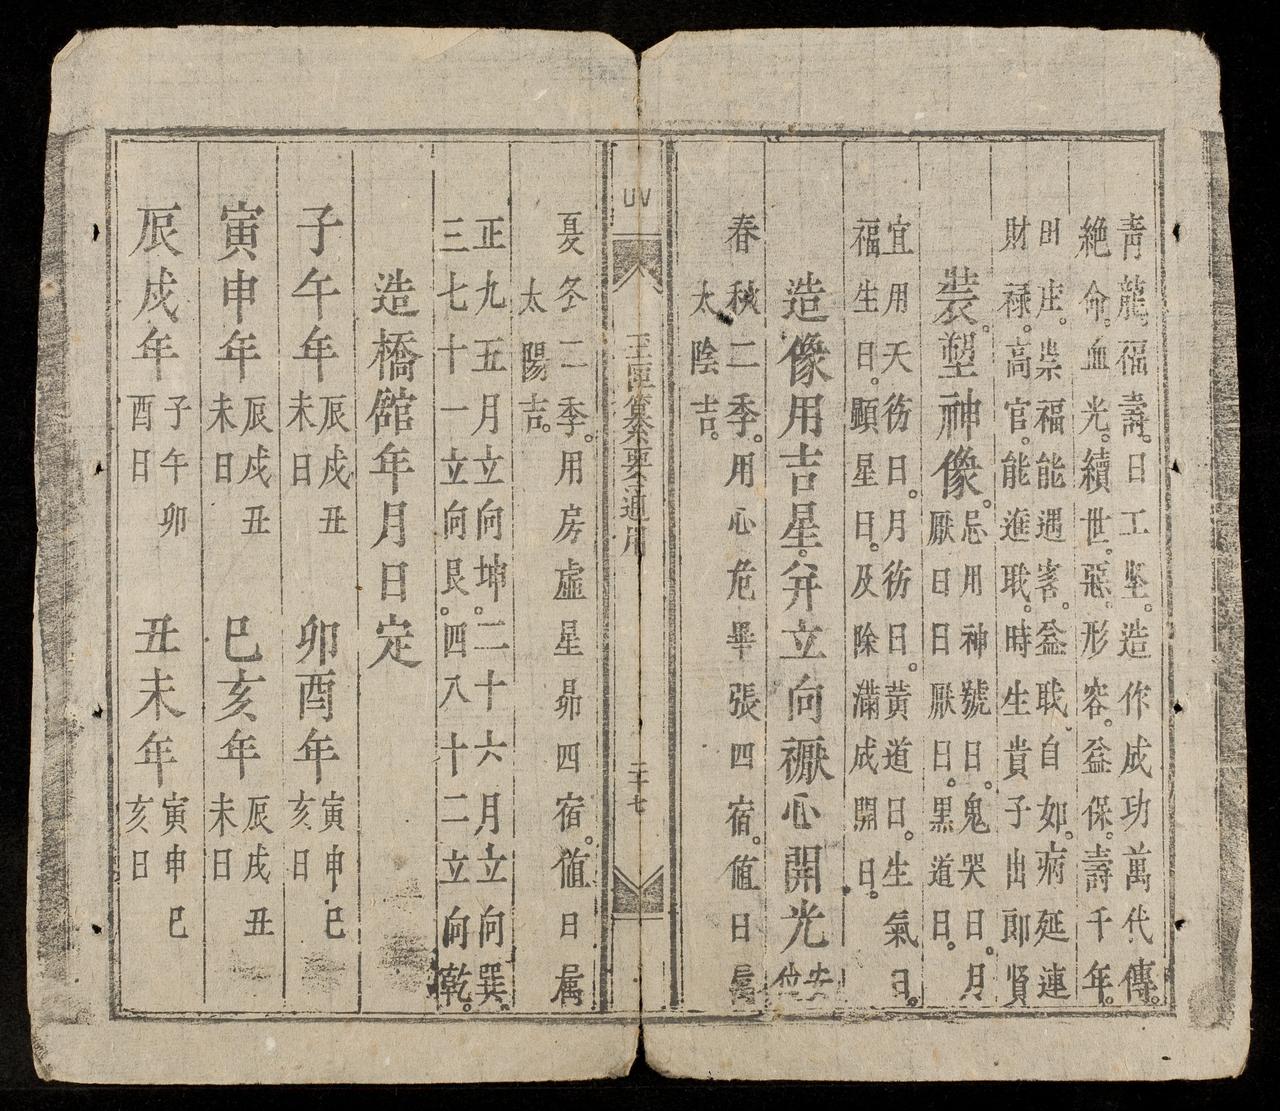 青龍。福壽。日工坚。造作成功萬代傳。
絶命。血光。續世。惡。形容。益保。壽千年。
田庄。崇福能遇害。益职自如。病延連
財禄。高官。能進职。時生貴子出郎賢
裝。塑神像。忌用神號日。鬼哭日。月
厭日日厭日。黑道日。
宜用天彷日。月彷日。黃道日。生氣日。
福生日。顯星日。及除滿成開日。
造像用吉星。并立向襒心開光安位
春秋二季。用心危畢張四宿。值日属
太陰吉。
玉匣篡要合通用
二十七
夏冬二季。用房虚星昴四宿。值日属
太陽吉。
正九五月立向坤。二十六月立向巽。
三七十一立向艮。四八十二立向乾。
造橋舘年月日定
子午年辰戍丑未日 卯酉年寅申巳亥日
寅申年辰戍丑未日 巳亥年辰戍丑未日
辰戍年子午卯酉日 丑未年寅申巳亥日